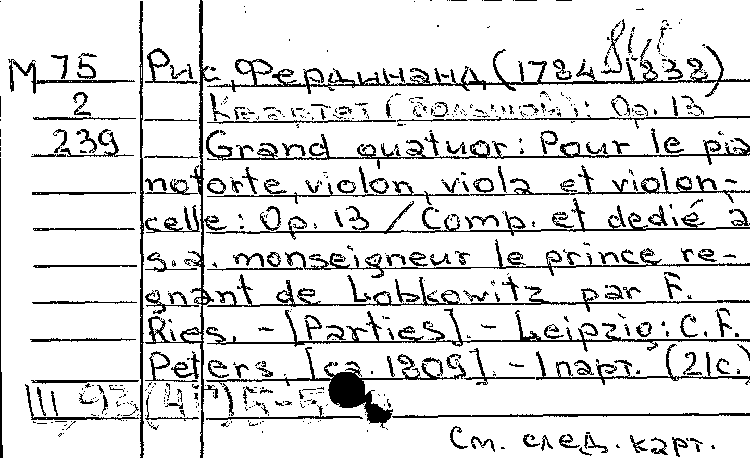 М 75 Рис, Фердинанд (1784-1838)
2 Квартет (большой): Op. 13
239 Grand quatuor: Pour le pia
noforte, violon, viola et violon-
celle: Op. 13 / Comp. et dedié à
s.a. monseigneur le prince re-
gnant de Lobkowitz par F.
Ries. - [Parties]. - Leipzig: C.F.
Peters, [ca. 1809]. - 1 парт. (21 с.)
III 93 5-5
См. след. карт.